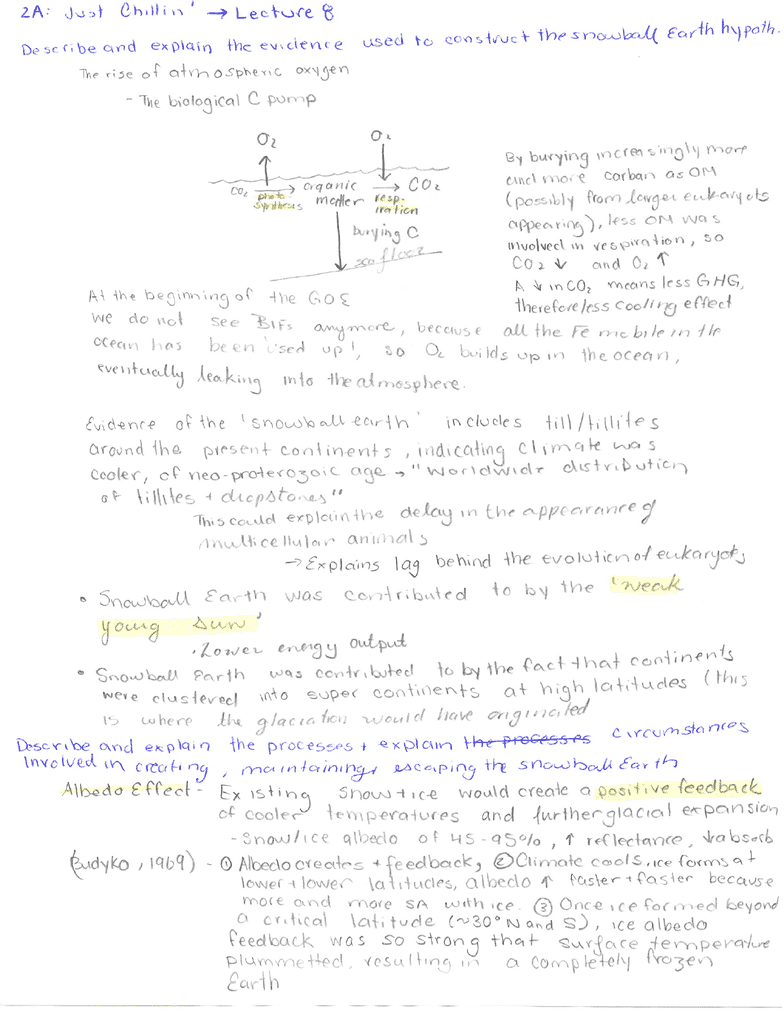 2A: Just Chillin' → Lecture 8
Describe and explain the evidence used to construct the snowball Earth hypoth.
The rise of atmospheric oxygen
- The biological C pump
O2 O2
CO2 → organic → CO2
photo synthesis matter resp- iration
burying C
sea floor
By burying increasingly more
and more carbon as OM
(possibly from larger eukaryots
appearing), less OM was
involved in respiration, so
CO2 ↓ and O2 ↑
A ↓ in CO2 means less GHG,
therefore less cooling effect
At the beginning of the GOE
we do not see BIFs anymore, because all the Fe mobile in the
ocean has been 'used up', so O2 builds up in the ocean,
eventually leaking into the atmosphere.
Evidence of the 'snowball earth' includes till/tillites
around the present continents, indicating climate was
cooler, of neo-proterozoic age → "worldwide distribution
of tillites + dropstones"
This could explain the delay in the appearance of
multicellular animals
→ Explains lag behind the evolution of eukaryots
• Snowball Earth was contributed to by the 'weak
young sun'
• Lower energy output
• Snowball Earth was contributed to by the fact that continents
were clustered into super continents at high latitudes (this
is where the glaciation would have originated
Describe and explain the processes + explain the processes circumstances
Involved in creating, maintaining, escaping the snowball Earth
Albedo Effect - Existing snow + ice would create a positive feedback
of cooler temperatures and further glacial expansion
- Snow/ice albedo of 45-95%, ↑ reflectance, ↓ absorb
(Budyko, 1969) - ① Albedo creates + feedback, ② Climate cools, ice forms at
lower + lower latitudes, albedo ↑ faster + faster because
more and more SA with ice. ③ Once ice formed beyond
a critical latitude (~30° N and S), ice albedo
feedback was so strong that surface temperature
plummetted, resulting in a completely frozen
Earth